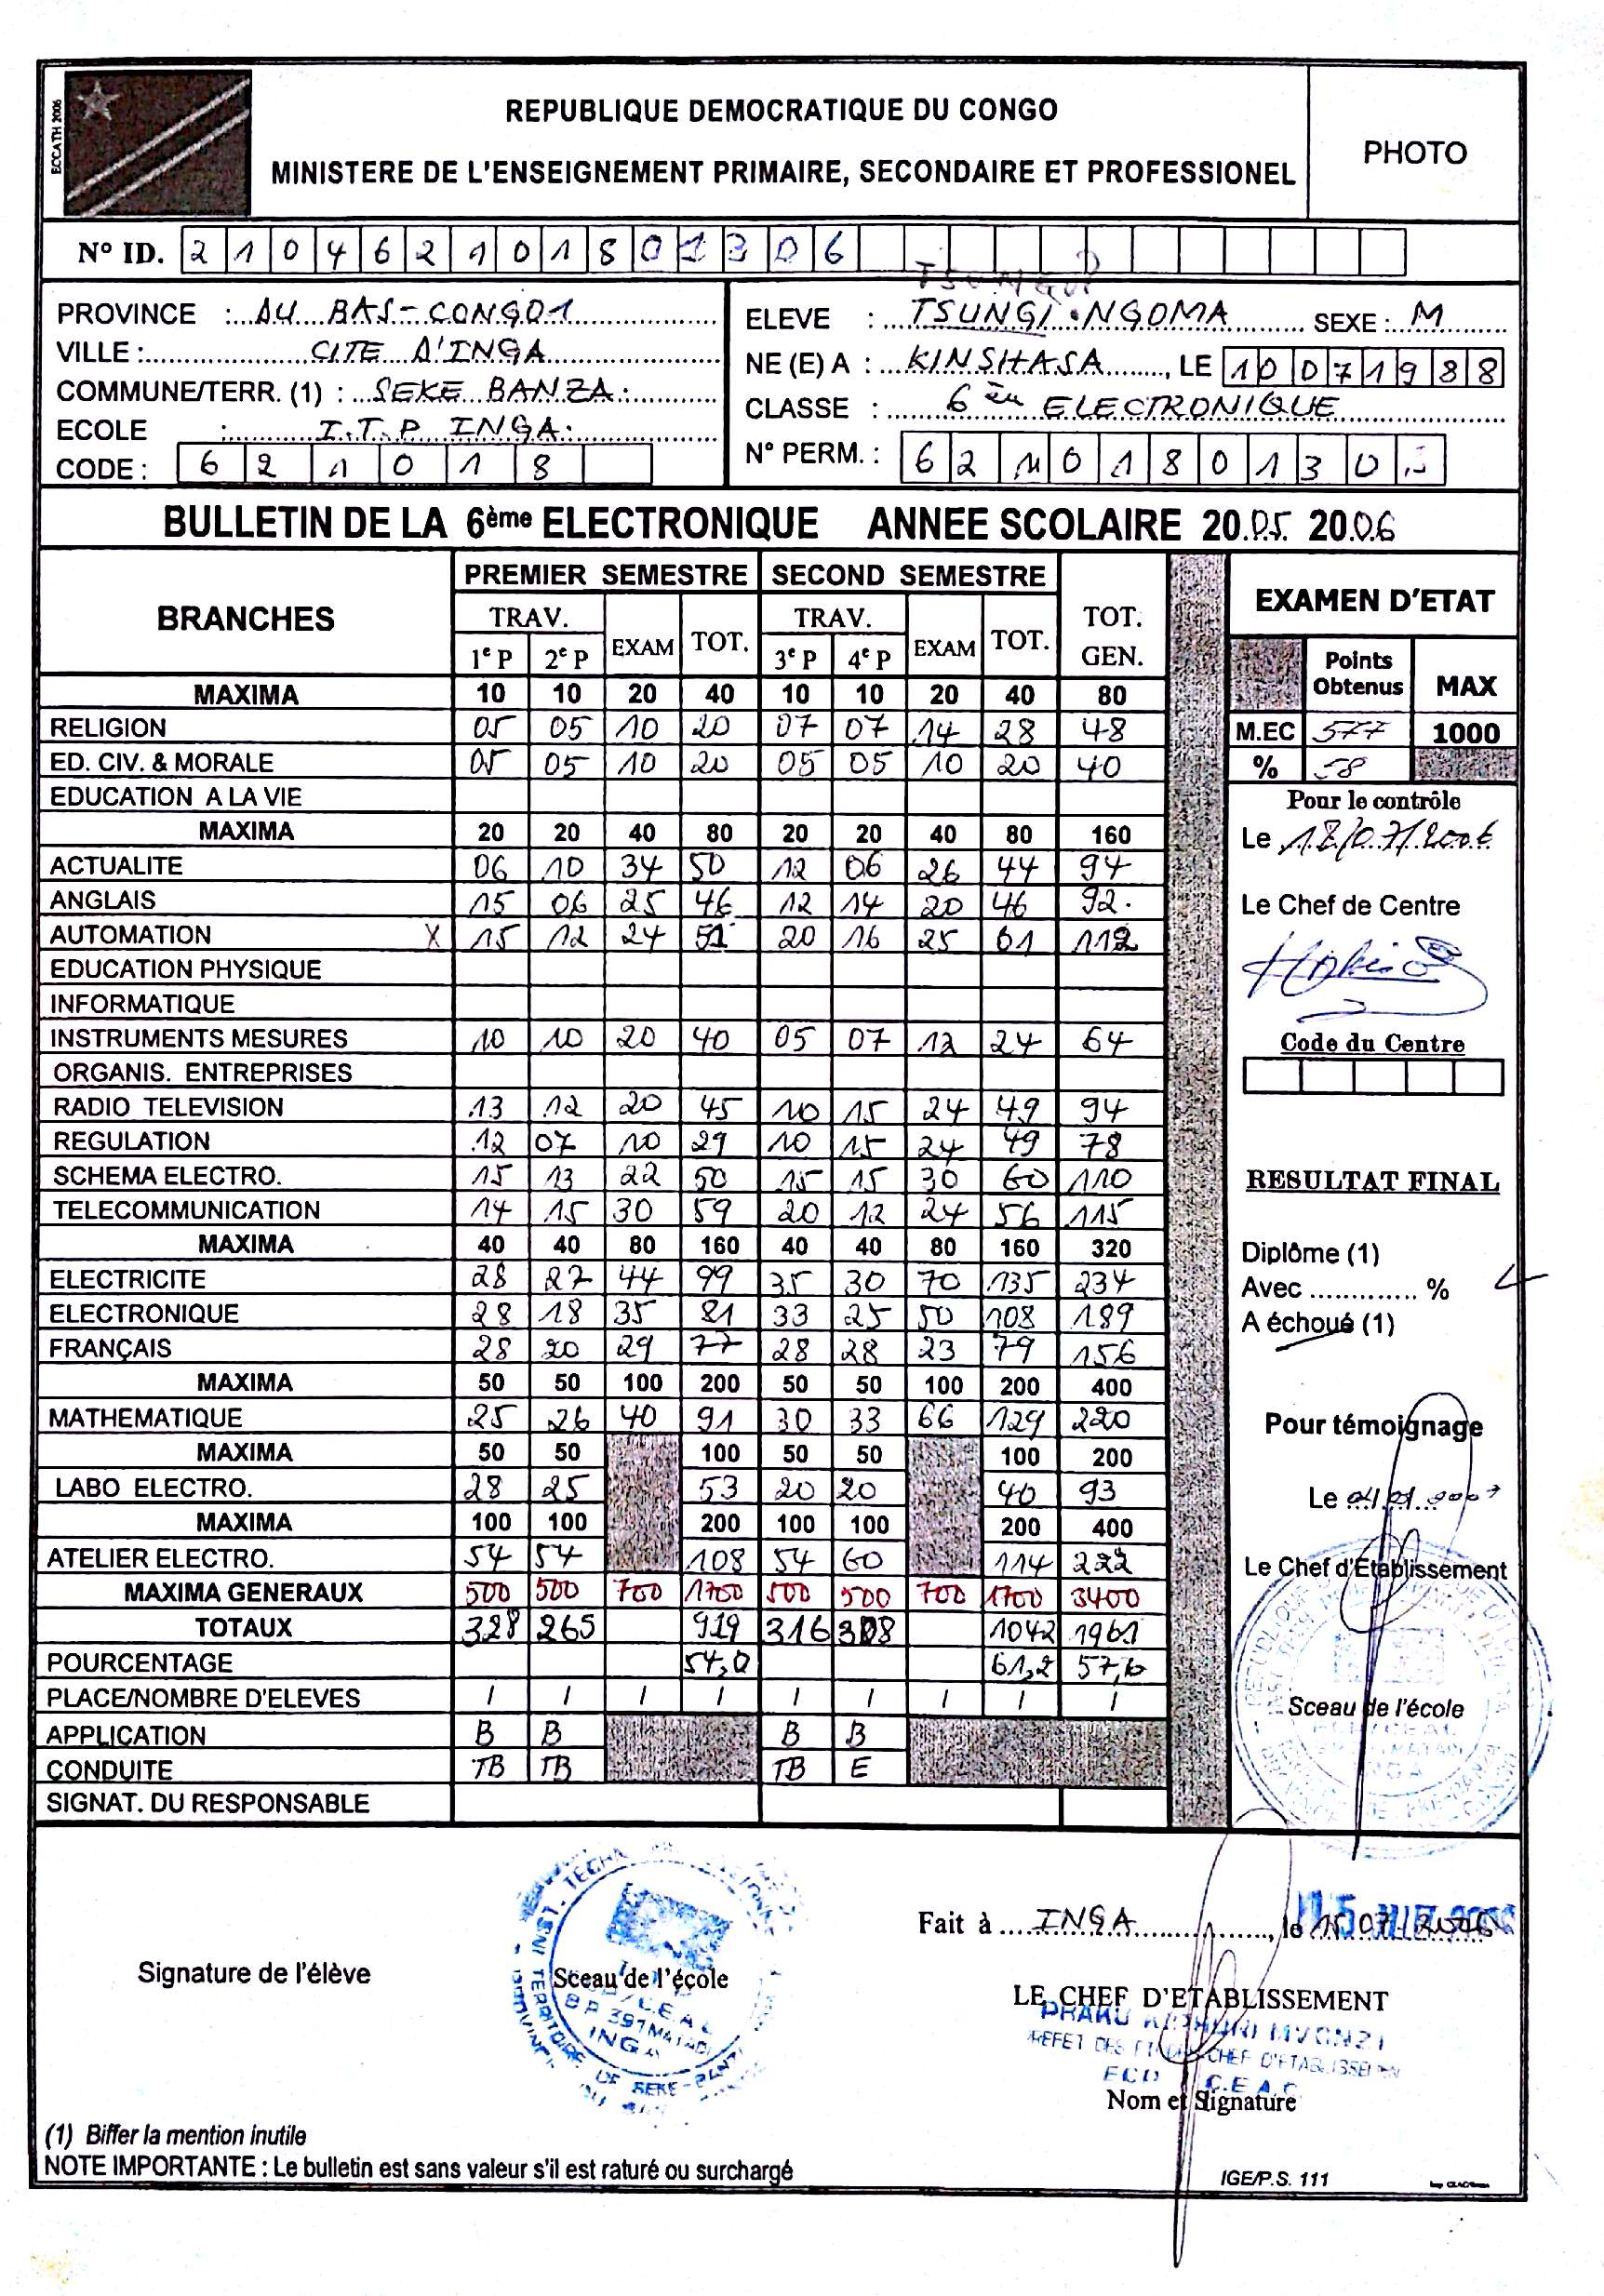 ECCATH 2006
REPUBLIQUE DEMOCRATIQUE DU CONGO
MINISTERE DE L'ENSEIGNEMENT PRIMAIRE, SECONDAIRE ET PROFESSIONEL
PHOTO
N° ID. 2 1 0 4 6 2 1 0 1 8 0 1 3 0 6
PROVINCE : DU BAS-CONGO1
VILLE : CITE D'INGA
COMMUNE/TERR. (1) : SEKE BANZA
ECOLE : I.T.P INGA
CODE : 6 2 1 0 1 8
ELEVE : TSUNGI NGOMA SEXE : M
NE (E) A : KINSHASA, LE 1 0 0 7 1 9 8 8
CLASSE : 6 ELECTRONIQUE
N° PERM. : 6 2 1 1 0 1 8 0 1 3 0
BULLETIN DE LA 6ème ELECTRONIQUE ANNEE SCOLAIRE 20.05 20.06
BRANCHES PREMIER SEMESTRE SECOND SEMESTRE TOT. GEN.
TRAV. EXAM TOT. TRAV. EXAM TOT.
1e P 2e P 3e P 4e P
MAXIMA 10 10 20 40 10 10 20 40 80
RELIGION 05 05 10 20 07 07 14 28 48
ED. CIV. & MORALE 05 05 10 20 05 05 10 20 40
EDUCATION A LA VIE
MAXIMA 20 20 40 80 20 20 40 80 160
ACTUALITE 06 10 34 50 12 06 26 44 94
ANGLAIS 15 06 25 46 12 14 20 46 92
AUTOMATION X 15 12 24 51 20 16 25 61 112
EDUCATION PHYSIQUE
INFORMATIQUE
INSTRUMENTS MESURES 10 10 20 40 05 07 12 24 64
ORGANIS. ENTREPRISES
RADIO TELEVISION 13 12 20 45 10 15 24 49 94
REGULATION 12 07 10 29 10 15 24 49 78
SCHEMA ELECTRO. 15 13 22 50 15 15 30 60 110
TELECOMMUNICATION 14 15 30 59 20 12 24 56 115
MAXIMA 40 40 80 160 40 40 80 160 320
ELECTRICITE 28 27 44 99 35 30 70 135 234
ELECTRONIQUE 28 18 35 81 33 25 50 108 189
FRANÇAIS 28 20 29 77 28 28 23 79 156
MAXIMA 50 50 100 200 50 50 100 200 400
MATHEMATIQUE 25 26 40 91 30 33 66 129 220
MAXIMA 50 50 100 50 50 100 200
LABO ELECTRO. 28 25 53 20 20 40 93
MAXIMA 100 100 200 100 100 200 400
ATELIER ELECTRO. 54 54 108 54 60 114 222
MAXIMA GENERAUX 500 500 700 1700 500 500 700 1700 3400
TOTAUX 328 265 919 316 308 1042 1961
POURCENTAGE 54,0 61,2 57,6
PLACE/NOMBRE D'ELEVES / / / / / / / / /
APPLICATION B B B B
CONDUITE TB TB TB E
SIGNAT. DU RESPONSABLE
EXAMEN D'ETAT
Points Obtenus MAX
M.EC 577 1000
% 58
Pour le contrôle
Le 18/07/2006
Le Chef de Centre
Code du Centre
RESULTAT FINAL
Diplôme (1)
Avec ............. %
A échoué (1)
Pour témoignage
Le
Le Chef d'Etablissement
Sceau de l'école
Signature de l'élève
Sceau de l'école
INST. TECHN
C.E.A.C
B P 397 MATADI
INGA
TERRITOIRE DE SEKE-BANZA
Fait à INGA, le 15.07.2006
LE CHEF D'ETABLISSEMENT
PREFET DES ETUDES CHEF D'ETABLISSEMENT
ECD C.E.A.C
Nom et Signature
(1) Biffer la mention inutile
NOTE IMPORTANTE : Le bulletin est sans valeur s'il est raturé ou surchargé
IGE/P.S. 111